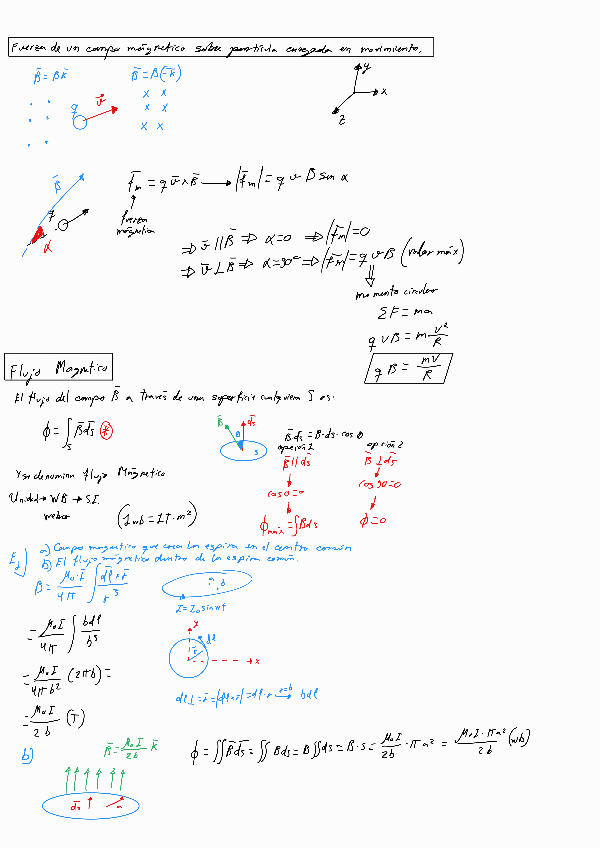 Fuerza de un campo mágnetico sobre partícula cargada en movimiento.
B̄ = B k̄
B̄ = B(-k̄)
x x
x x
x x
q
v̄
y
x
z
B̄
q
α
f̄m = q v̄ x B̄ → |f̄m| = q v B sin α
fuerza
mágnetica
⇒ v̄ || B̄ ⇒ α=0 ⇒ |f̄m| = 0
⇒ v̄ ⊥ B̄ ⇒ α=90° ⇒ |f̄m| = q v B (valor máx)
momento circular
ΣF = ma
q v B = m v²/R
q B = mv/R
Flujo Magnetico
El flujo del campo B̄ a través de una superficie cualquiera S es:
ϕ = ∫s B̄ ds̄ *
B̄
θ
ds̄
s
B̄ ds̄ = B·ds·cos θ
opción 1
opción 2
B̄ || ds̄
B̄ ⊥ ds̄
cos 0 =
cos 90 = 0
ϕmáx = ∫B ds
ϕ = 0
Y se denomina flujo Mágnetico
Unidad → WB → S.I.
weber
(1wb = 1T·m²)
Ej
a) Campo magnetico que crea la espira en el centro común
b) El flujo mágnetico dentro de la espira común.
B̄ = μ₀·I/4π ∫ dl̄ x r̄/r³
b
I = I₀ sin wt
= μ₀I/4π ∫ b dl/b³
y
dl
r̄
x
= μ₀I/4πb² (2πb) =
dl̄ ⊥ r̄ = |dl̄ x r̄| = dl·r → r=b b dl
= μ₀I/2b (T)
b)
B̄ = μ₀I/2b k̄
ϕ = ∫∫ B̄ ds̄ = ∫∫ B ds = B ∫∫ ds = B·s = μ₀I/2b · πa² = μ₀I·πa²/2b (wb)
ds̄
a